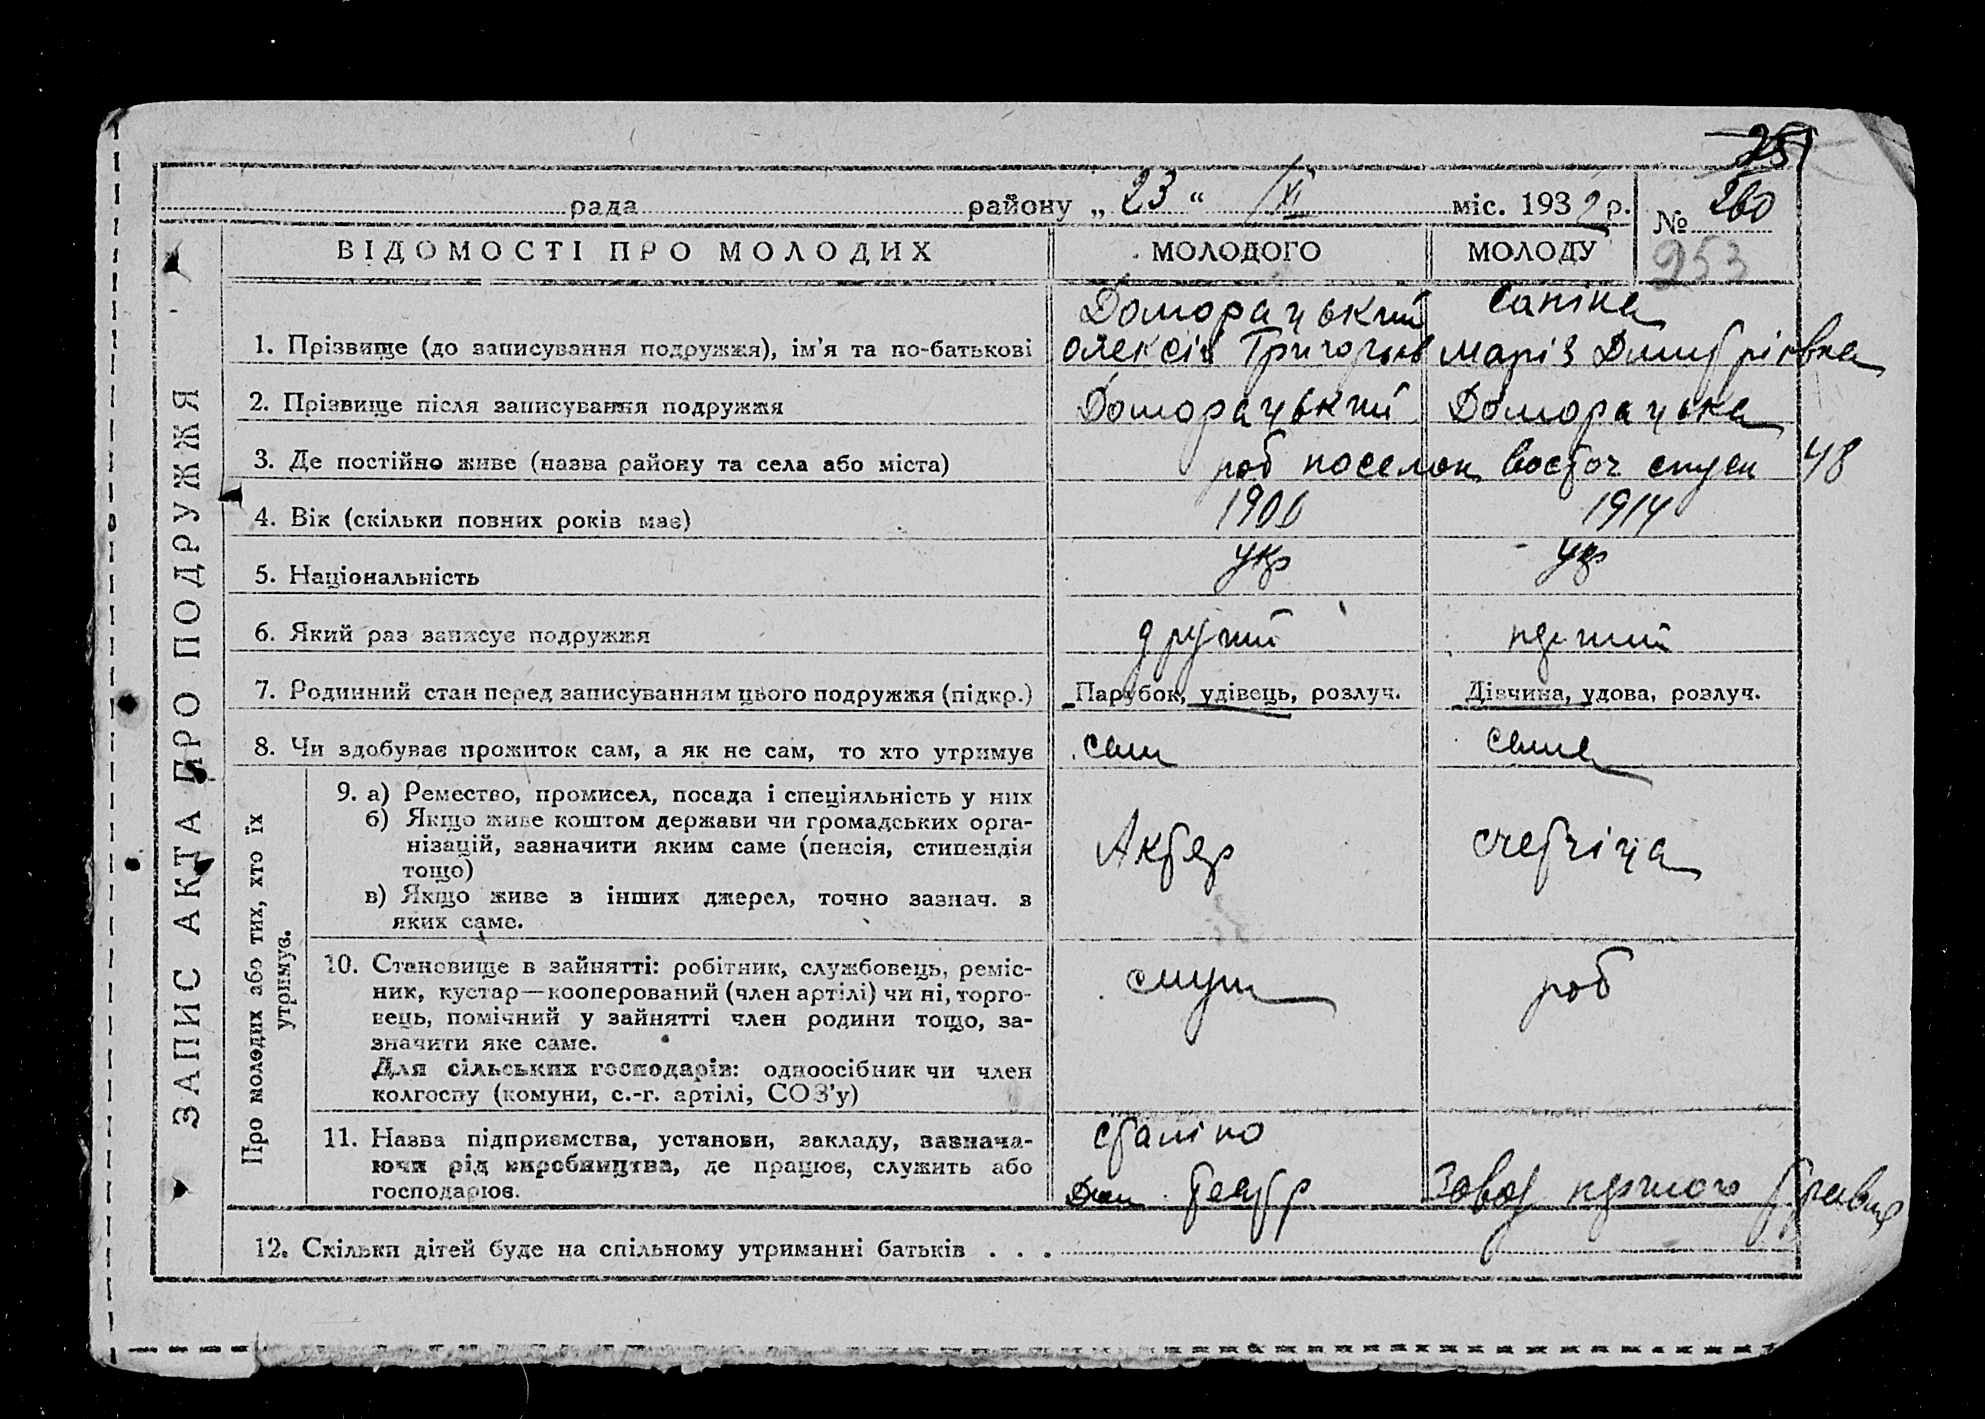 251
рада района „23“ XI міс. 1932 р. № 260
253
ВІДОМОСТІ ПРО МОЛОДИХ МОЛОДОГО МОЛОДУ
Доморацький Сапіна
1. Прізвище (до записування подружжя), ім'я та по-батькові Олексій Григорьев Марія Дмитрівна
2. Прізвище після записування подружжя Доморацький Доморацька
3. Де постійно живе (назва району та села або міста) роб поселок восточ 48
4. Вік (скільки повних років має) 1906 1914
5. Національність укр укр
6. Який раз записує подружжя другий перший
7. Родинний стан перед записуванням цього подружжя (підкр.) Парубок, удівець, розлуч. Дівчина, удова, розлуч.
8. Чи здобуває прожиток сам, а як не сам, то хто утримує сам сама
9. а) Ремество, промисел, посада і спеціяльність у них
б) Якщо живе коштом держави чи громадських орга-
нізацій, зазначити яким саме (пенсія, стипендія
тощо)
Актер
в) Якщо живе з інших джерел, точно зазнач. з
яких саме.
10. Становище в зайнятті: робітник, службовець, реміс-
ник, кустар—кооперований (член артілі) чи ні, торго-
вець, помічний у зайнятті член родини тощо, за-
значити яке саме.
Для сільських господарів: одноосібник чи член
колгоспу (комуни, с.-г. артілі, СОЗ'у)
служ роб
11. Назва підприємства, установи, закладу, зазнача-
ючи рід виробництва, де працює, служить або
господарює.
Сталіно
Театр Завод
12. Скільки дітей буде на спільному утриманні батьків . . .
ЗАПИС АКТА ПРО ПОДРУЖЖЯ
Про молодих або тих, хто їх
утримує.